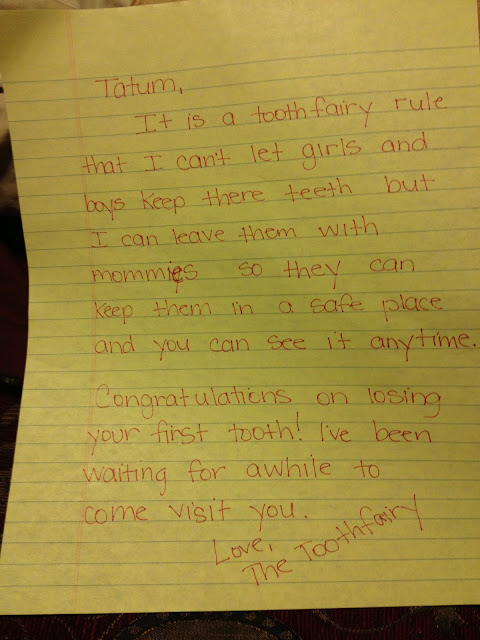 Tatum,
It is a toothfairy rule
that I can't let girls and
boys keep there teeth but
I can leave them with
mommies so they can
keep them in a safe place
and you can see it anytime.
Congratulations on losing
your first tooth! I've been
waiting for awhile to
come visit you.
Love,
The Toothfairy